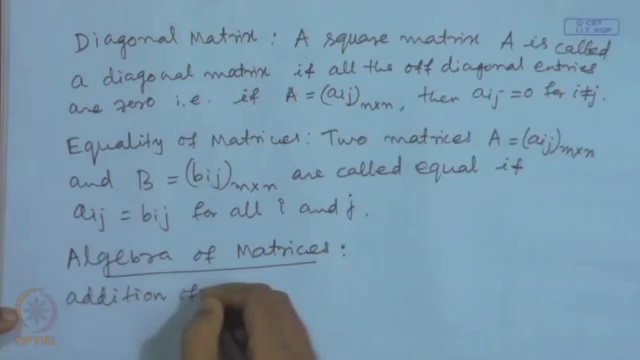 © CET
I.I.T. KGP
Diagonal Matrix : A square matrix A is called
a diagonal matrix if all the off diagonal entries
are zero i.e. if A = (aij)n×n, then aij = 0 for i≠j.
Equality of Matrices: Two matrices A = (aij)m×n
and B = (bij)m×n are called equal if
aij = bij for all i and j.
Algebra of Matrices :
addition of
NPTEL